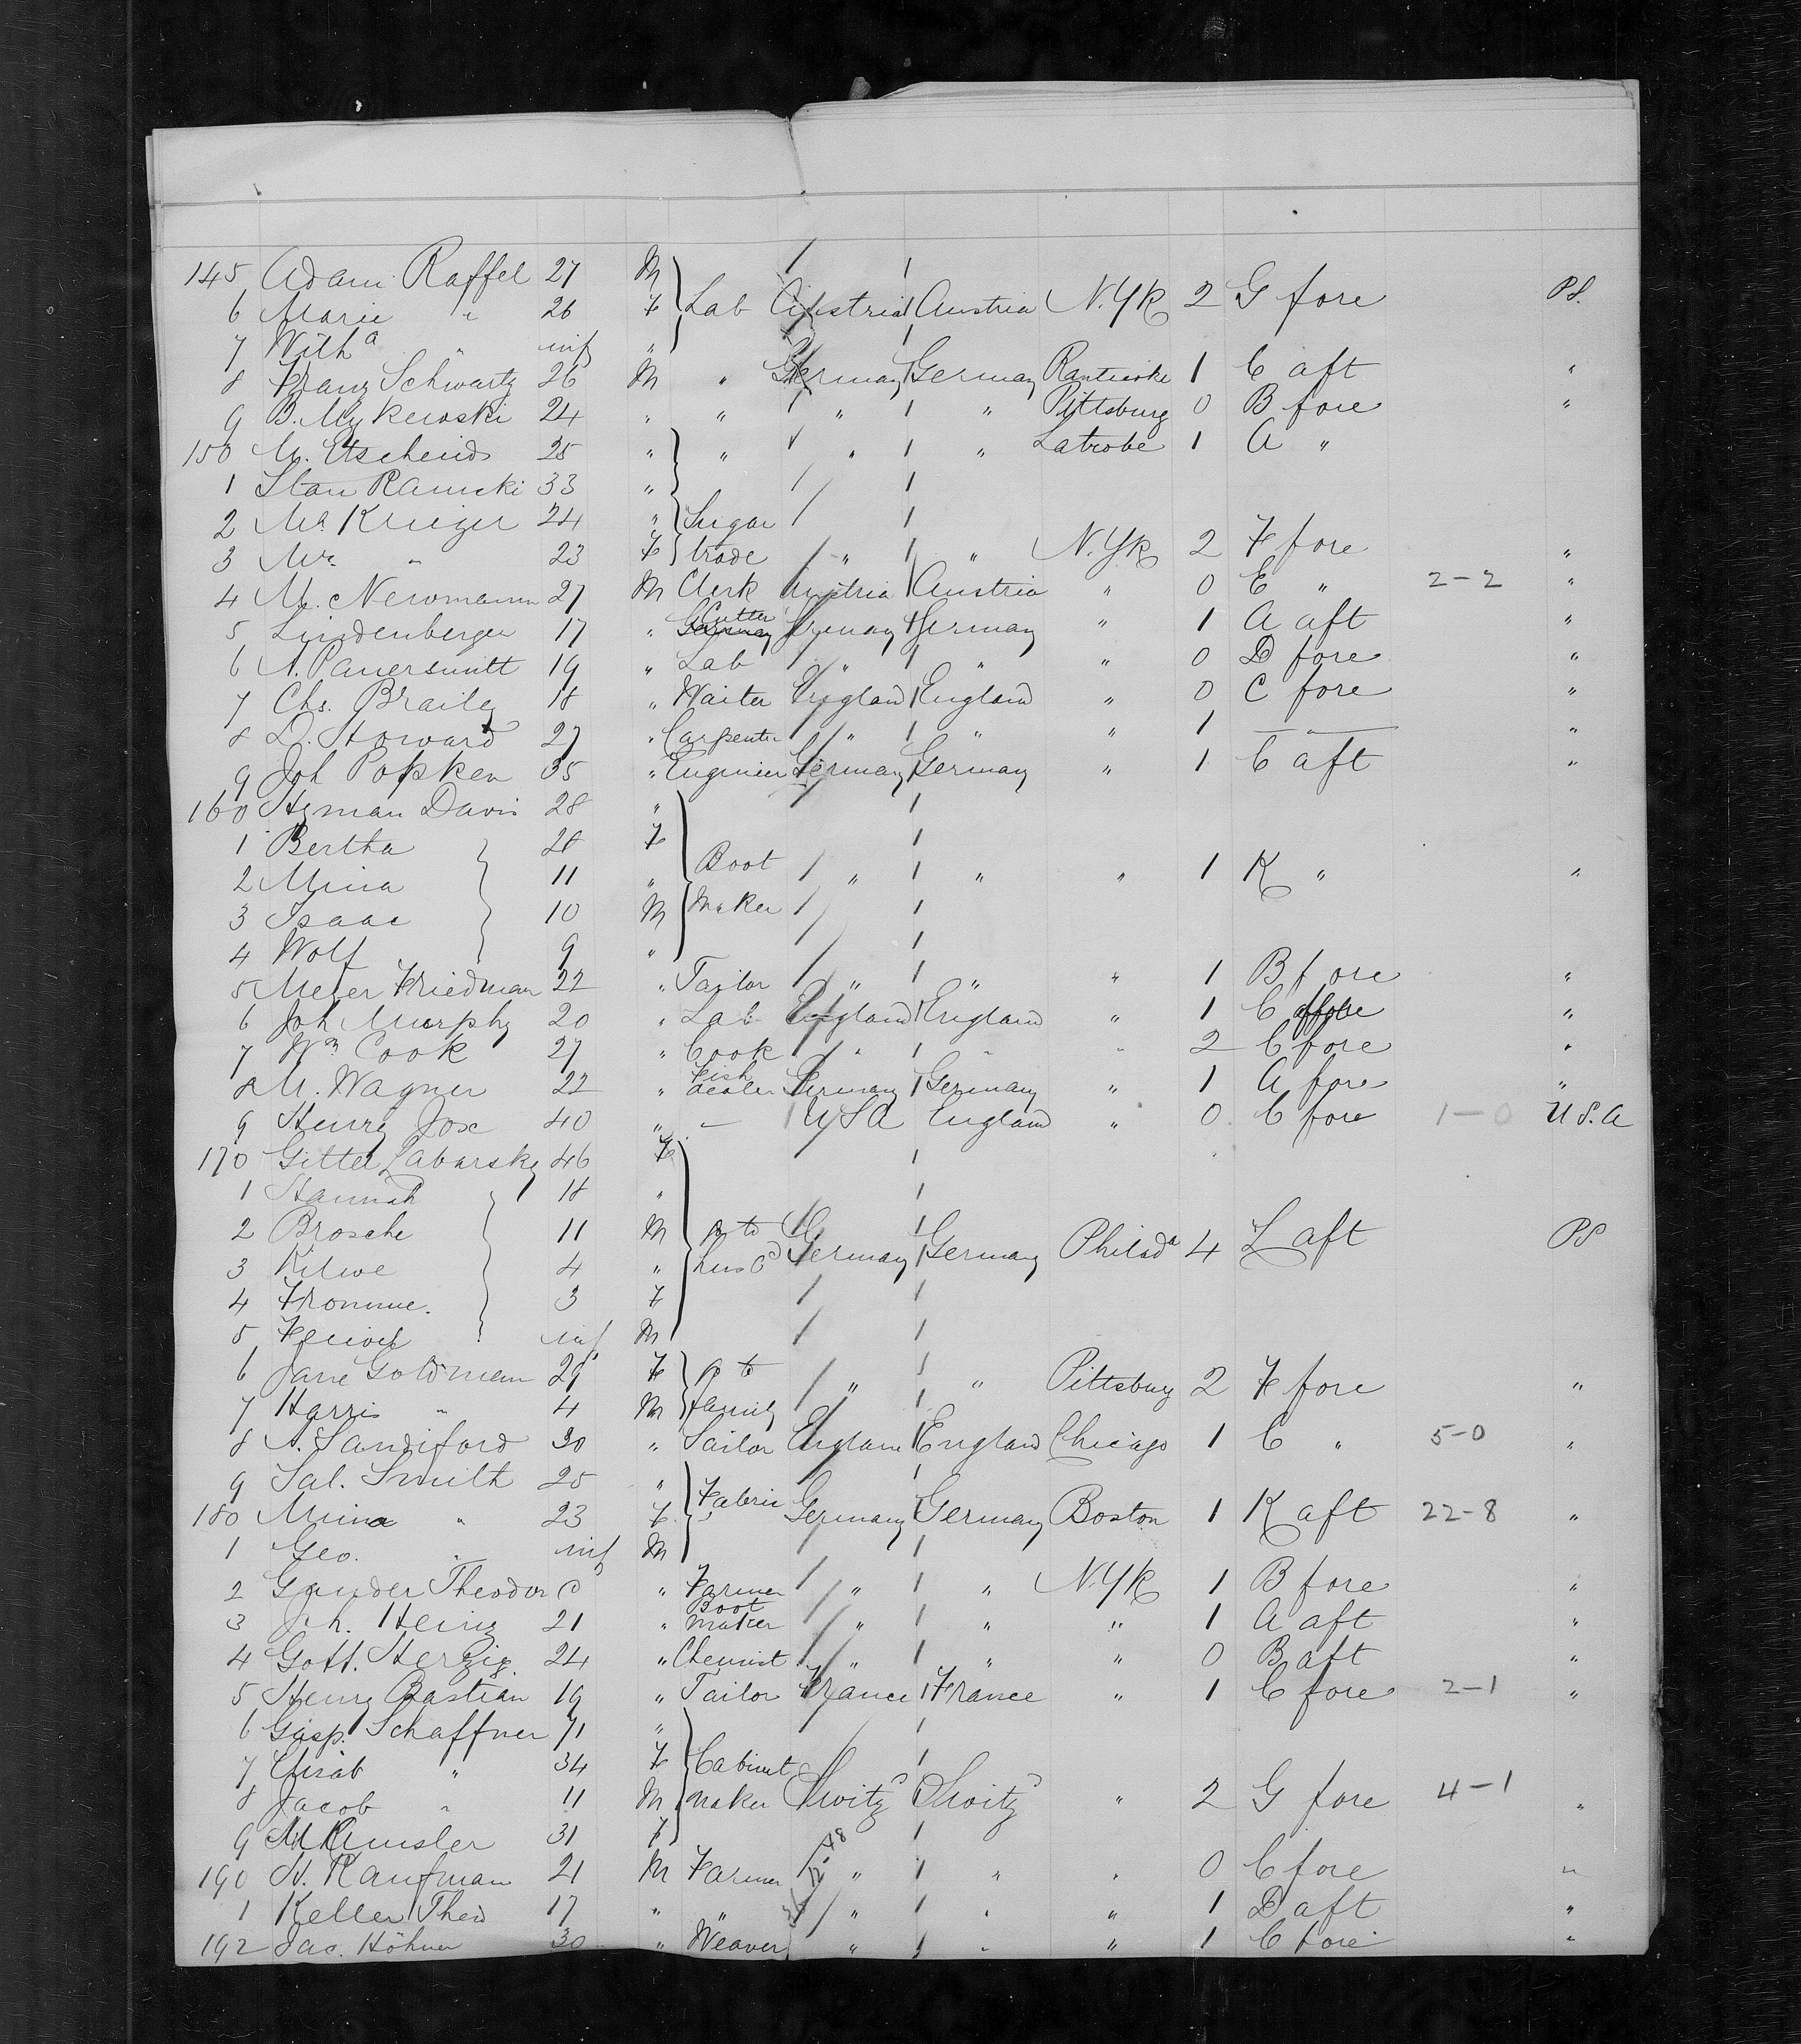 145 Adam Raffel 27 M
6 Marie " 26 F Lab Austria Austria N.YK 2 G fore P.S.
7 With a " inf "
8 Franz Schwartz 26 M " Germany Germany 1 C aft "
9 B. Mykewski 24 " " " " Pittsburg 0 B fore "
150 M. Etscheid 25 " " " " Latrobe 1 A "
1 Stan Ramcki 33 "
2 Mr. Krieger 24 " Sugar
3 Mrs " 23 F trade " " N.YK 2 F fore "
4 M. Newmann 27 M Clerk Austria Austria " 0 E " 2-2 "
5 Lindenberger 17 " Cutter Germany Germany " 1 A aft "
6 A. Pauersmitt 19 " Lab " " " 0 D fore "
7 Chs. Braily 18 " Waiter England England " 0 C fore "
8 D. Howard 27 " Carpenter " " " 1 — " — "
9 Joh Popken 35 " Engineer Germany Germany " 1 C aft "
160 Hyman Davis 28 "
1 Bertha 28 F
2 Mina 11 " Boot " " " 1 K " "
3 Isaac 10 M Maker
4 Wolf 9 "
5 Meyer Friedman 22 " Tailor " " " 1 B fore "
6 Joh Murphy 20 " Lab England England " 1 C fore "
7 Wm Cook 27 " Cook " " " 2 C fore "
8 M. Wagner 22 " Fish dealer Germany Germany " 1 A fore "
9 Henry Jose 40 " — USA England " 0 C fore 1-0 U.S.A
170 Gittel Labarsky 46 F
1 Hannah 18 "
2 Brosche 11 M p to
3 Kilwe 4 " husbd Germany Germany Philada 4 L aft PS
4 Fromme. 3 F
5 inf M
6 Jane Goldman 29 F p to " " Pittsburg 2 F fore "
7 Harris " 4 M family
8 A. Sandiford 30 " Sailor England England Chicago 1 C " 5-0 "
9 Sal. Smith 25 "
180 Mina " 23 F Fabric Germany Germany Boston 1 K aft 22-8 "
1 Geo. " inf M
2 Gander Theodor " Farmer " " N.YK 1 B fore "
3 Joh. Heinz 21 " Boot maker " " " 1 A aft "
4 Gott. Herzig 24 " Chemist " " " 0 B aft "
5 Henry Bastian 19 " Tailor France France " 1 C fore 2-1 "
6 Gasp. Schaffner 71 "
7 Elisab " 34 F Cabinet
8 Jacob " 11 M maker Switzd Switzd " 2 G fore 4-1 "
9 M Amsler 31 F
190 H. Kaufman 21 M Farmer " " " 0 C fore "
1 Keller Theo 17 " " " " " 1 D aft "
192 Jac. Höhner 30 " Weaver " " " 1 C fore "